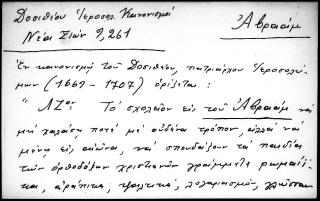 Δοσιθέου Ἱεροσολ. Κανονισμοί
Νέα Σιών 9,261
Ἀβραάμ
Ἐν κανονισμῷ τοῦ Δοσιθέου, πατριάρχου Ἱεροσολύ-
μων (1669 - 1707) ὁρίζεται:
"ΛΖον Τὸ σχολεῖον εἰς τοῦ Ἀβραὰμ νὰ
μὴ χαλάσῃ ποτὲ μὲ οὐδένα τρόπον, ἀλλὰ νὰ
μένῃ εἰς αἰῶνα, νὰ σπουδάζουν τὰ παιδία
τῶν ὀρθοδόξων χριστιανῶν γράμματα ρωμαίϊ-
κα, ἀράπικα, ψαλτικά, λογαριασμόν, γλῶσσαν